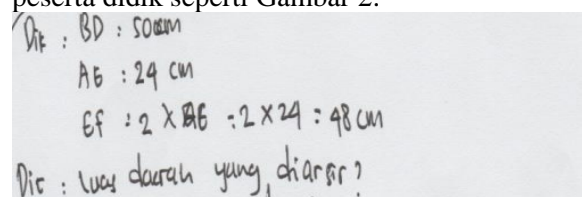 peserta didik seperti Gambar 2.
Dik : BD : 50 cm
AE : 24 cm
EF : 2 X AE : 2 X 24 : 48 cm
Dit : luas daerah yang diarsir?